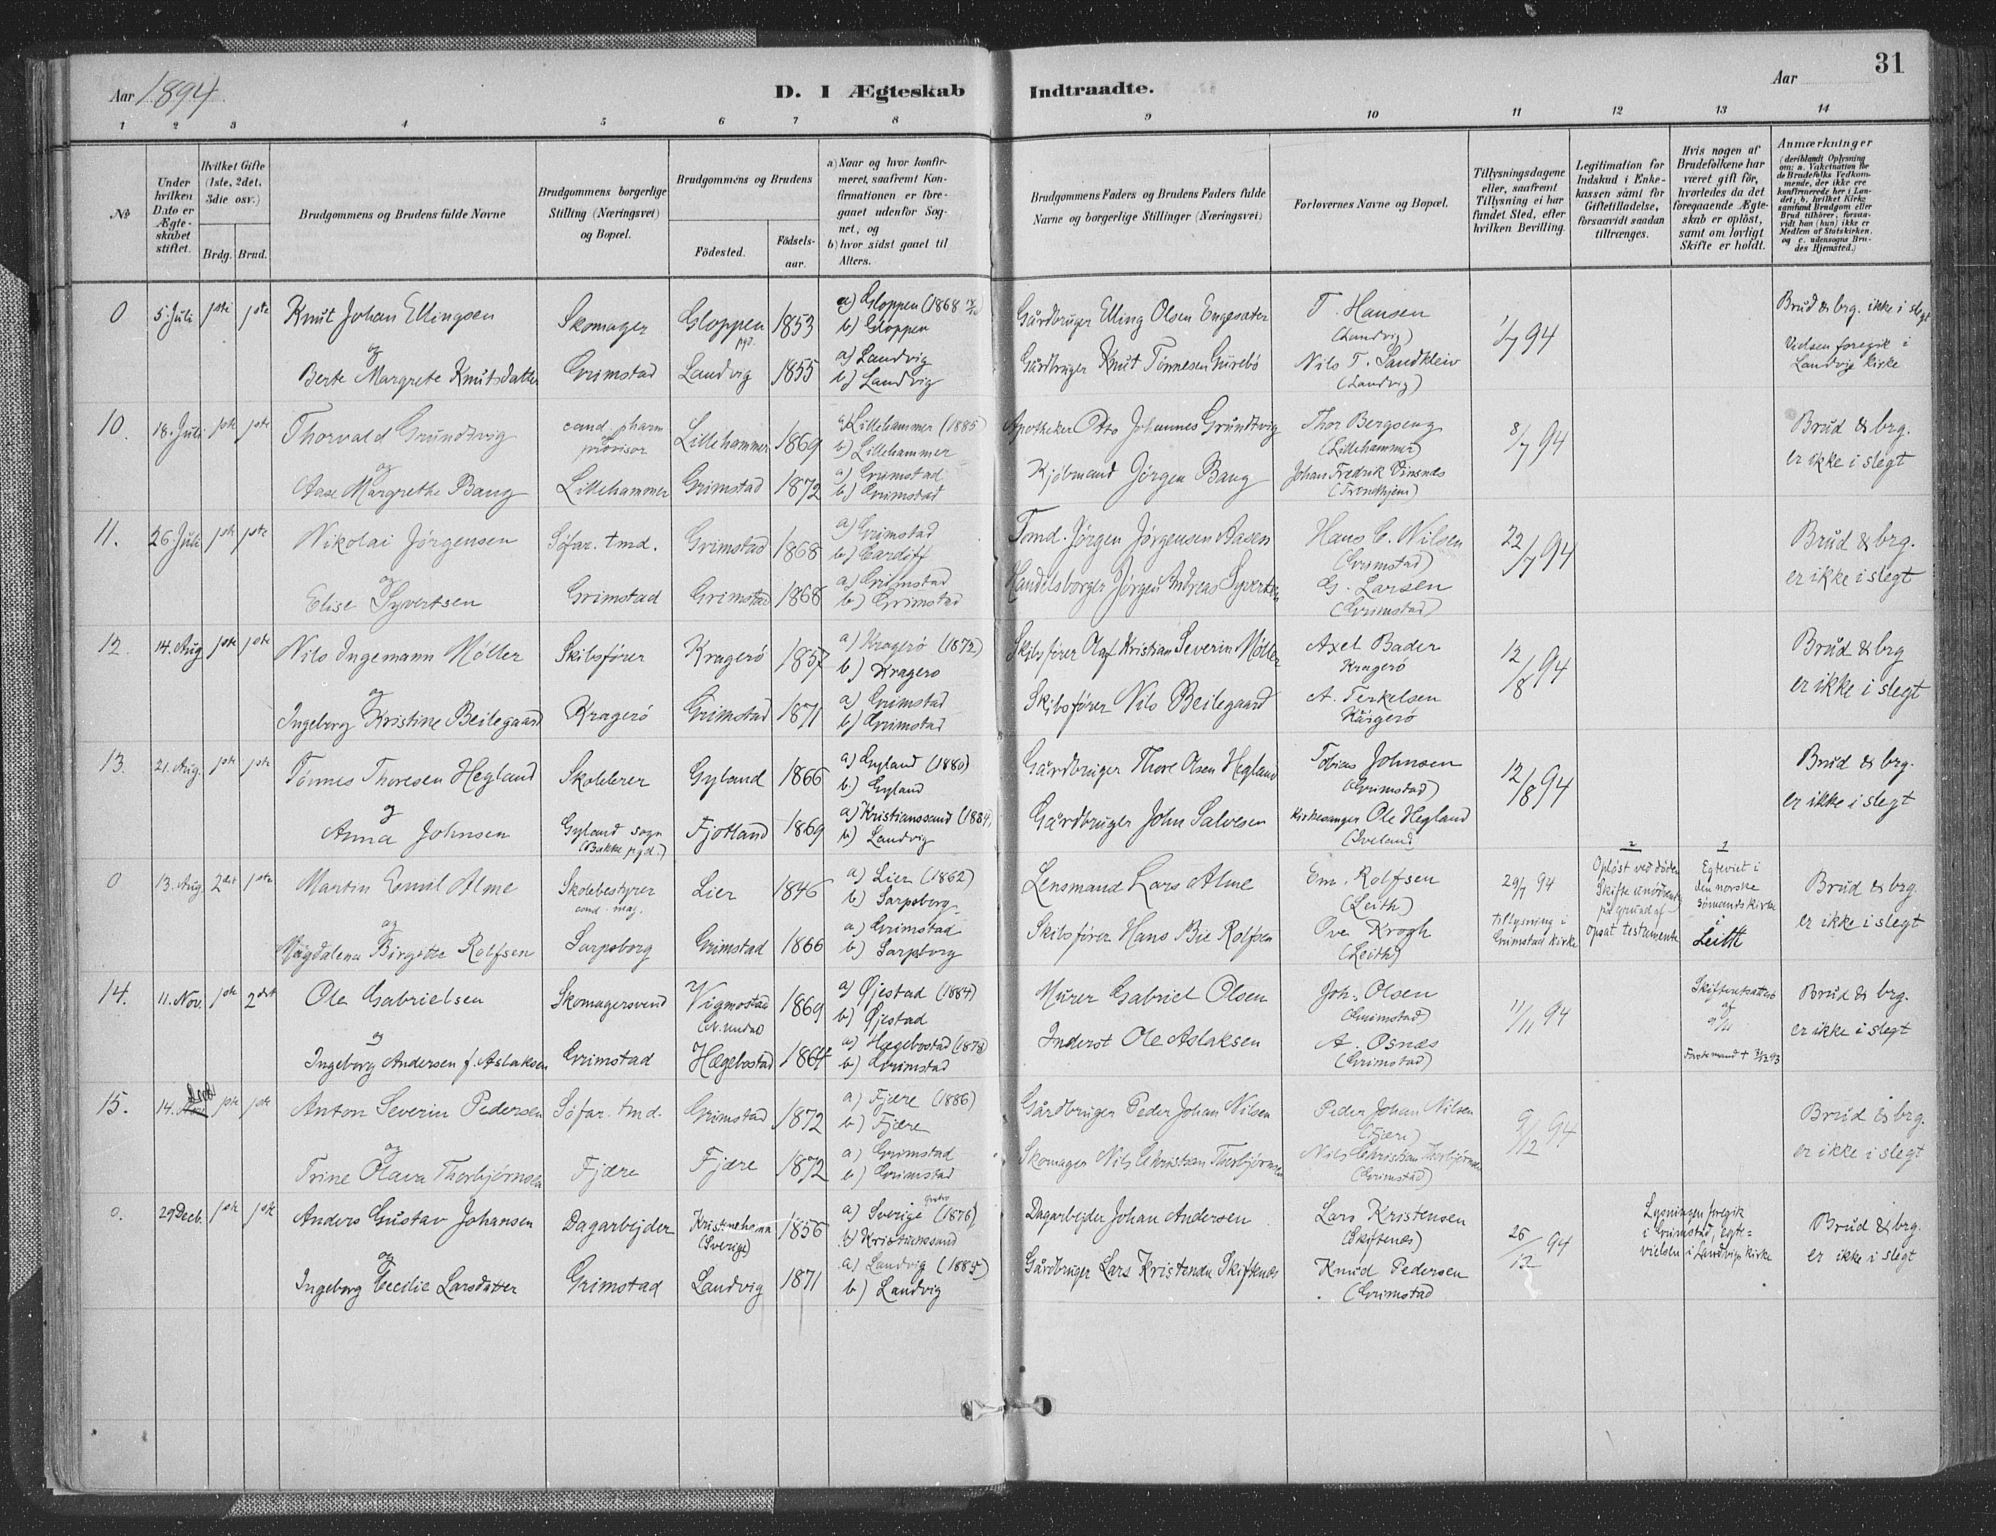 Aar 1894.
D. I Ægteskab Indtraadte.
Aar
31
1 2 3 4 5 6 7 8 9 10 11 12 13 14
№
Under hvilken Dato er Ægteskabet stiftet.
Hvilket Gifte (1ste, 2det, 3die osv.)
Brdg. Brud.
Brudgommens og Brudens fulde Navne
Brudgommens borgerlige Stilling (Næringsvei) og Bopæl.
Brudgommens og Brudens
Födested.
Födselsaar.
a) Naar og hvor konfirmeret, saafremt Konfirmationen er foregaaet udenfor Sognet, og
b) hvor sidst gaaet til Alters.
Brudgommens Faders og Brudens Faders fulde Navne og borgerlige Stillinger (Næringsvei)
Forlovernes Navne og Bopæl.
Tillysningsdagene eller, saafremt Tillysning ei har fundet Sted, efter hvilken Bevilling.
Legitimation for Indskud i Enkekassen samt for Giftetilladelse, forsaavidt saadan tiltrænges.
Hvis nogen af Brudefolkene har været gift för, hvorledes da det foregaaende Ægteskab er oplöst, samt om lovligt Skifte er holdt.
Anmærkninger
(deriblandt Oplysning om: a. Vakcination for de Brudefolks Vedkommende, der ikke ere konfirmerede her i Landet; b. hvilket Kirkesamfund Brudgom eller Brud tilhörer, forsaavidt han (hun) ikke er Medlem af Statskirken, og c. udensogns Brudes Hjemsted.)
0 5 Juli 1ste 1ste Knut Johan Ellingsen Skomager Gloppen pgd. 1853 a) Gloppen (1868) b) Gloppen Gårdbruger Elling Olsen Engesæter T. Hansen (Landvig) 1/7 94 Brud & brg. ikke i slegt
og Berte Margrete Knutsdatter Grimstad Landvig 1855 a) Landvig b) Landvig Gårdbruger Knut Tönnesen Nils T. Sandkleiv (Landvig) Vielsen foregik i Landvigs kirke
10. 18. Juli 1ste 1ste Thorvald Grundtvig cand. pharm provisor Lillehammer 1869 a) Lillehammer (1885) b) Lillehammer Apotheker Otto Johannes Grundtvig Thor Bergseng (Lillehammer) 8/7 94 Brud & brg.
og Aase Margrethe Bang Lillehammer Grimstad 1872 a) Grimstad b) Grimstad Kjøbmand Jørgen Bang Johan Fredrik Vinsnes (Trondhjem) er ikke i slegt
11. 26 Juli 1ste 1ste Nikolai Jörgensen Söfar. tmd. Grimstad 1868 a) Grimstad b) Cardiff Tmd. Jørgen Jørgensen Aasen Hans C. Nilsen (Grimstad) 22/7 94 Brud & brg.
og Elise Syvertsen Grimstad Grimstad 1868 a) Grimstad b) Grimstad Handelsborger Jørgen Andreas Syvertsen G. Larsen (Grimstad) er ikke i slegt
12. 14. Aug 1ste 1ste Nils Ingemann Möller Skibsförer Kragerö 1857 a) Kragerö (1872) b) Kragerö Skibsförer Olaf Kristian Severin Möller Axel Bader Kragerö 12/8 94 Brud & brg
og Ingeborg Kristine Beilegaard Kragerö Grimstad 1871 a) Grimstad b) Grimstad Skibsförer Nils Beilegaard A. Terkelsen Kragerø er ikke i slegt
13. 21. Aug. 1ste 1ste Tönnes Thoresen Hegland Skolelærer Gyland 1866 a) Gyland (1880) b) Gyland Gårdbruger Thore Olsen Hegland Tobias Johnsen (Grimstad) 12/8 94 Brud & brg.
og Anna Johnsen Gyland sogn (Bakke pgd.) Fjotland 1869 a) Kristianssand (1884) b) Landvig Gårdbruger John Salvesen Kirkesanger Ole Hegland (Iveland) er ikke i slegt
0 13. Aug. 2det 1ste Martin Emil Alme Skolebestyrer cand. mag. Lier 1846 a) Lier (1862) b) Sarpsborg Lensmand Lars Alme Em. Rolfsen (Leith) 29/7 94 2 Oplöst ved döden. Skifte unödvend. på grund af opsat testamente 1 Egteviet i den norske sömandskirke i Leith Brud & brg.
og Magdalena Birgette Rolfsen Sarpsborg Grimstad 1866 a) Grimstad b) Sarpsborg Skibsförer Hans Bie Rolfsen Ove Krogh (Leith) Tillysning i Grimstad kirke er ikke i slegt
14. 11. Nov. 1ste 2det Ole Gabrielsen Skomagersvend Vigmostad 1869 a) Øjestad (1884) b) Øjestad Murer Gabriel Olsen Joh. Olsen (Grimstad) 11/11 94 Skifteretsattest af 9/11 Brud & brg.
og Ingeborg Andersen f. Aslaksen Grimstad Hægebostad 1864 a) Hægebostad (1878) b) Grimstad Inderst Ole Aslaksen A. Osnes (Grimstad) er ikke i slegt
15. 14. Decb 1ste 1ste Anton Severin Pedersen Söfar. tmd. Grimstad 1872 a) Fjære (1886) b) Fjære Gårdbruger Peder Johan Nilsen Peder Johan Nilsen (Fjære) 9/12 94 Brud & brg.
og Trine Olava Thorbjörnsen Fjære Fjære 1872 a) Grimstad b) Grimstad Skomager Nils Christian Thorbjörnsen Nils Christian Thorbjörnsen (Grimstad) er ikke i slegt
0. 29 Decb. 1ste 1ste Anders Gustav Johansen Dagarbejder Kristinehamn (Sverige) 1856 a) Sverige (1876) b) Kristianssand Dagarbejder Johan Andersen Lars Kristensen (Skiftenæs) 26/12 94 Lysningen foregik i Grimstad, egtevielsen i Landvigs kirke Brud & brg.
og Ingeborg Cecilie Larsdatter Grimstad Landvig 1871 a) Landvig (1885) b) Landvig Gårdbruger Lars Kristensen Skiftenæs Knud Pedersen (Grimstad) er ikke i slegt